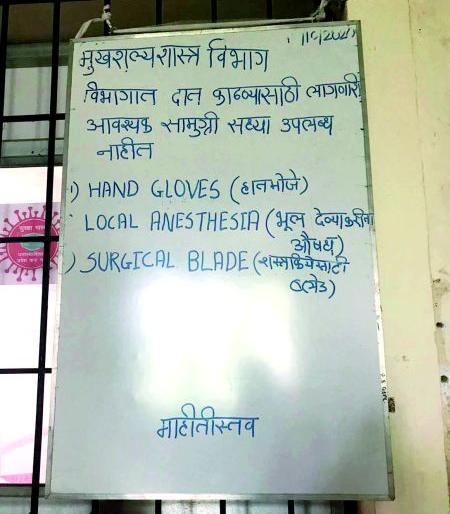 मुखशल्यशास्त्र विभाग
विभागात दात काढण्यासाठी लागणारी
आवश्यक सामुग्री सध्या उपलब्ध
नाहीत
1) HAND GLOVES (हातमोजे)
LOCAL ANESTHESIA (भूल देण्याकरीता
औषध)
) SURGICAL BLADE (शस्त्रक्रियेसाठी
ब्लेड)
माहीतीस्तव